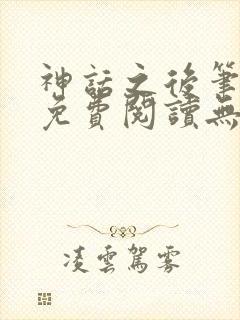 神話之後筆
免費閱讀無
凌雲駕霧